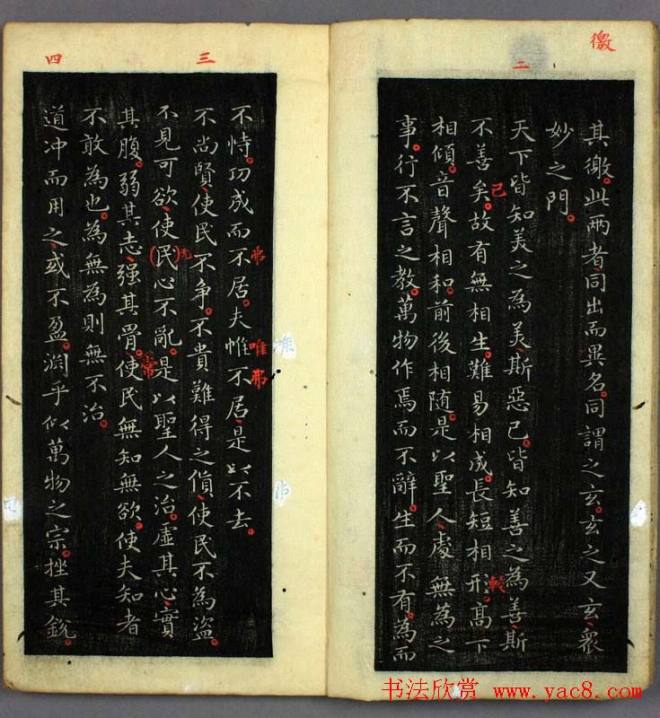 徼
二
其徼。此兩者同出而異名。同謂之玄。玄之又玄、衆
妙之門。
天下皆知美之為美、斯惡已。皆知善之為善、斯
已
不善矣。故有無相生。難易相成。長短相形。高下
較
相傾。音聲相和。前後相隨。是以聖人處無為之
事。行不言之教。萬物作焉而不辭。生而不有。為而
三
不恃。功成而不居。夫惟不居、是以不去。
弗
唯弗
不尚賢、使民不爭。不貴難得之貨、使民不為盜。
不見可欲、使(民)心不亂。是以聖人之治。虛其心、實
其腹。弱其志、强其骨。使民無知無欲。使夫知者
常
不敢為也。為無為則無不治。
四
道冲而用之、或不盈。淵乎似萬物之宗。挫其銳。
书法欣赏 www.yac8.com